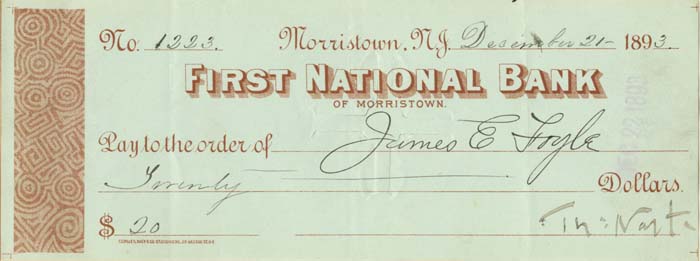 No. 1223. Morristown, N.J. December 21- 1893.
FIRST NATIONAL BANK
OF MORRISTOWN.
Pay to the order of James E Foyle
Twenty Dollars.
$ 20